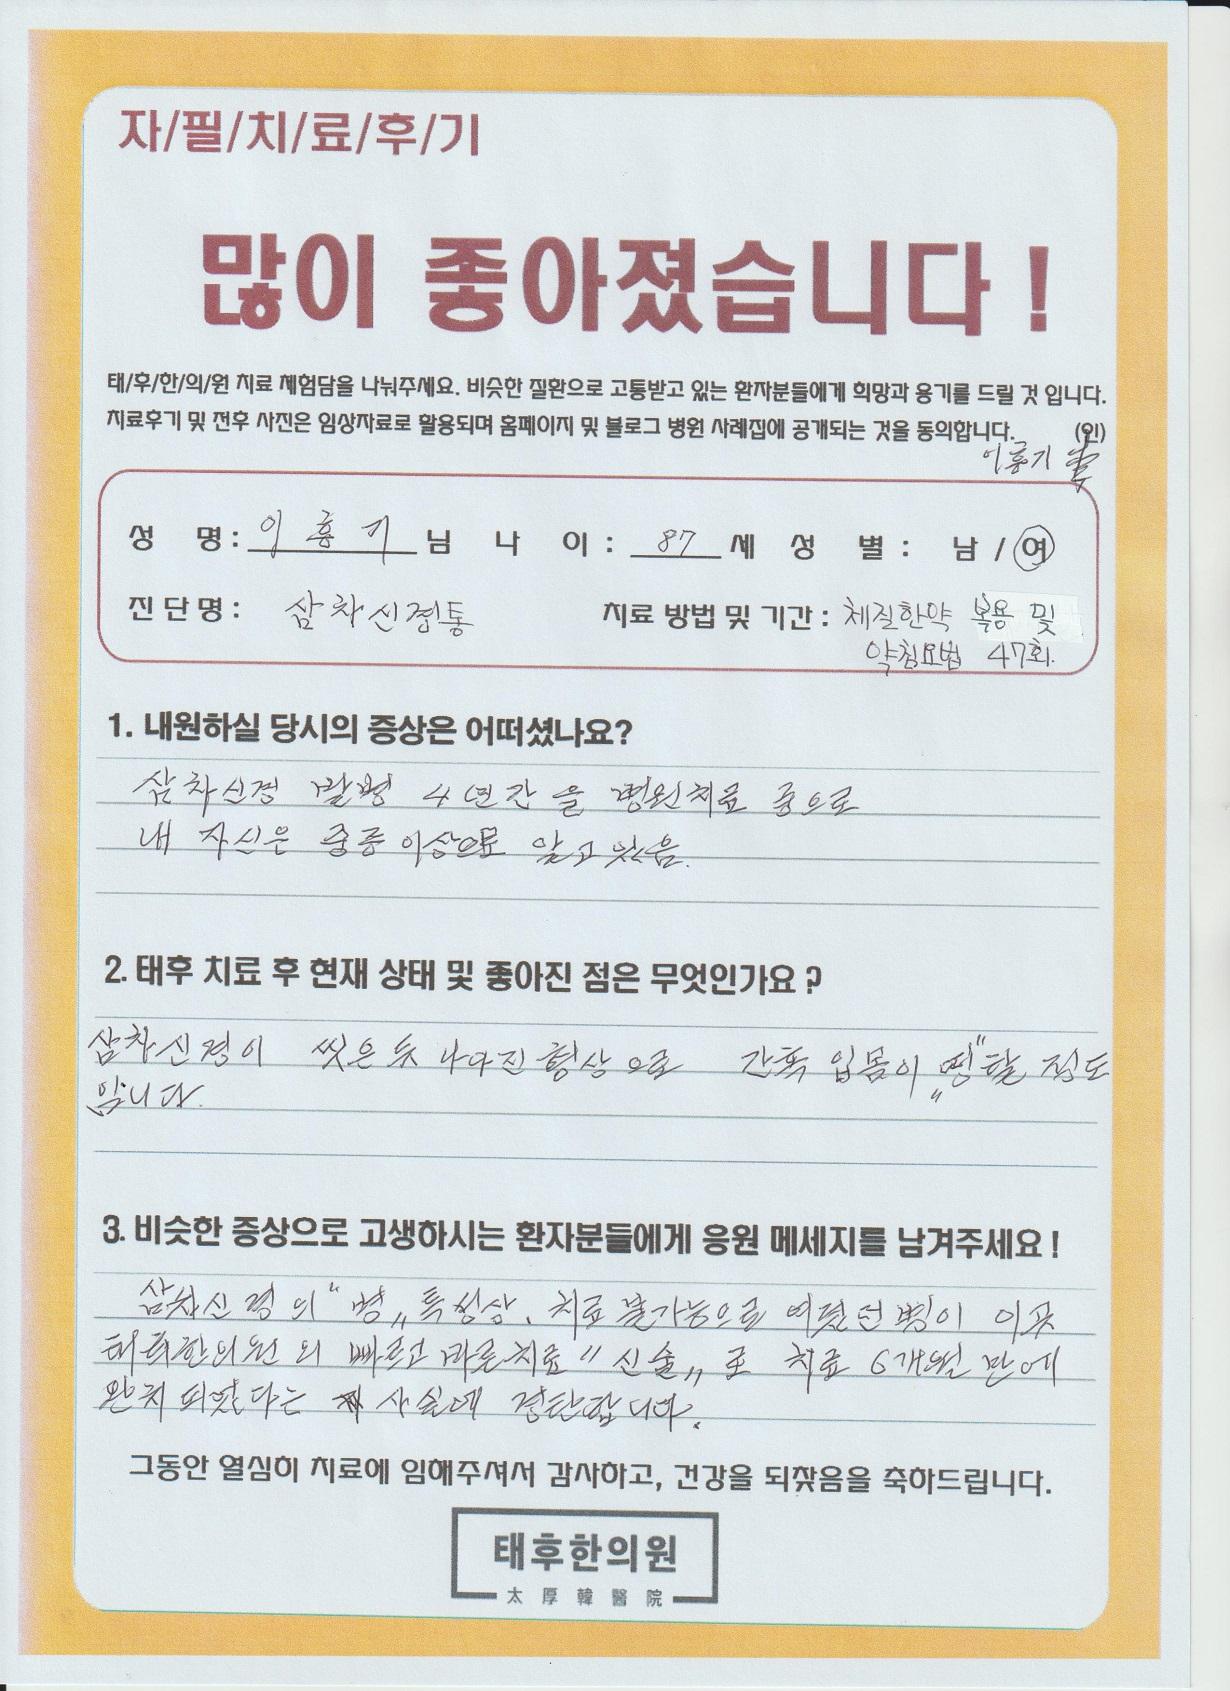 자/필/치/료/후/기
많이 좋아졌습니다 !
태/후/한/의/원 치료 체험담을 나눠주세요. 비슷한 질환으로 고통받고 있는 환자분들에게 희망과 용기를 드릴 것 입니다.
치료후기 및 전후 사진은 임상자료로 활용되며 홈페이지 및 블로그 병원 사례집에 공개되는 것을 동의합니다. (인)
이흥기
성 명 : 이 흥 기 님 나 이 : 87 세 성 별 : 남 / 여
진단명 : 삼차신경통 치료 방법 및 기간 : 체질한약 복용 및
약침요법 47회.
1. 내원하실 당시의 증상은 어떠셨나요?
삼차신경 발병 4년간 을 병원치료 중으로
내 자신은 중증이상으로 알고 있음.
2. 태후 치료 후 현재 상태 및 좋아진 점은 무엇인가요 ?
삼차신경이 씻은듯 나아진 형상으로 간혹 입몸이 "띵"할 정도
입니다.
3. 비슷한 증상으로 고생하시는 환자분들에게 응원 메세지를 남겨주세요 !
삼차신경의 "병" 특성상. 치료 불가능으로 여겼던 병이 이곳
태후한의원의 빠르고 바른치료 "신술" 로 치료 6개월 만에
완치 되었다는 사실에 경탄합니다.
그동안 열심히 치료에 임해주셔서 감사하고, 건강을 되찾음을 축하드립니다.
태후한의원
太厚韓醫院